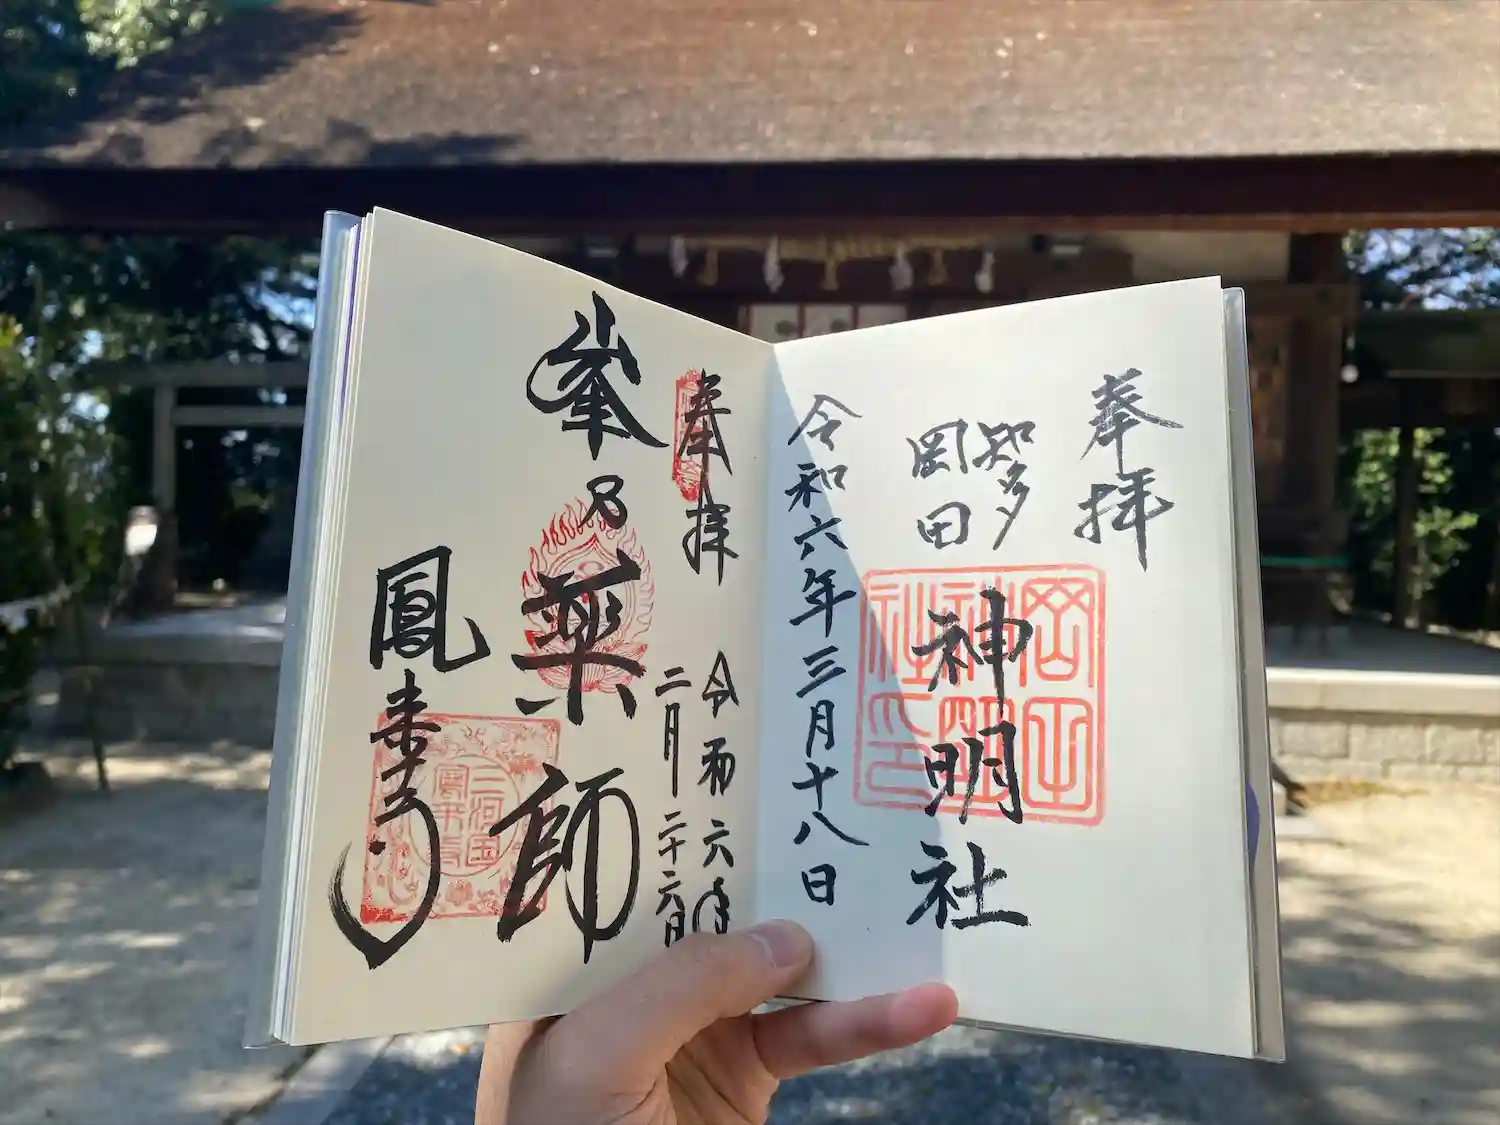 奉拝
知多
岡田
神明社
岡田
神明
社印
令和六年三月十八日
奉拝
令和六年
二月二十六日
峯乃薬師
鳳来寺
三河国
鳳来寺